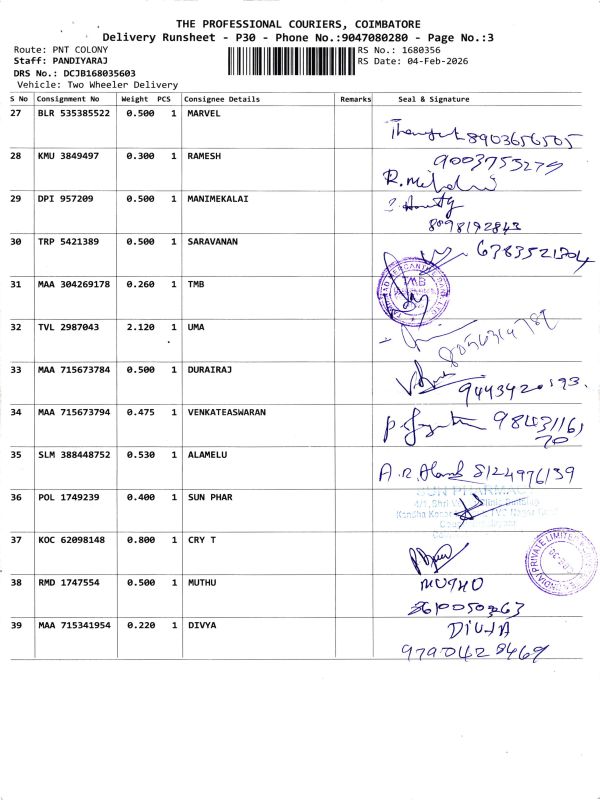 THE PROFESSIONAL COURIERS, COIMBATORE
Delivery Runsheet - P30 - Phone No.:9047080280 - Page No.:3
Route: PNT COLONY RS No.: 1680356
Staff: PANDIYARAJ RS Date: 04-Feb-2026
DRS No.: DCJB168035603
Vehicle: Two Wheeler Delivery
S No Consignment No Weight PCS Consignee Details Remarks Seal & Signature
27 BLR 535385522 0.500 1 MARVEL
8903656505
28 KMU 3849497 0.300 1 RAMESH
9003755279
29 DPI 957209 0.500 1 MANIMEKALAI
8098192843
30 TRP 5421389 0.500 1 SARAVANAN
31 MAA 304269178 0.260 1 TMB
TMB
32 TVL 2987043 2.120 1 UMA
33 MAA 715673784 0.500 1 DURAIRAJ
9443420193.
34 MAA 715673794 0.475 1 VENKATEASWARAN
98431161
70
35 SLM 388448752 0.530 1 ALAMELU
8124976139
36 POL 1749239 0.400 1 SUN PHAR
37 KOC 62098148 0.800 1 CRY T
PRIVATE LIMITED
38 RMD 1747554 0.500 1 MUTHU
MUTHU
39 MAA 715341954 0.220 1 DIVYA
DIVYA
9790428469